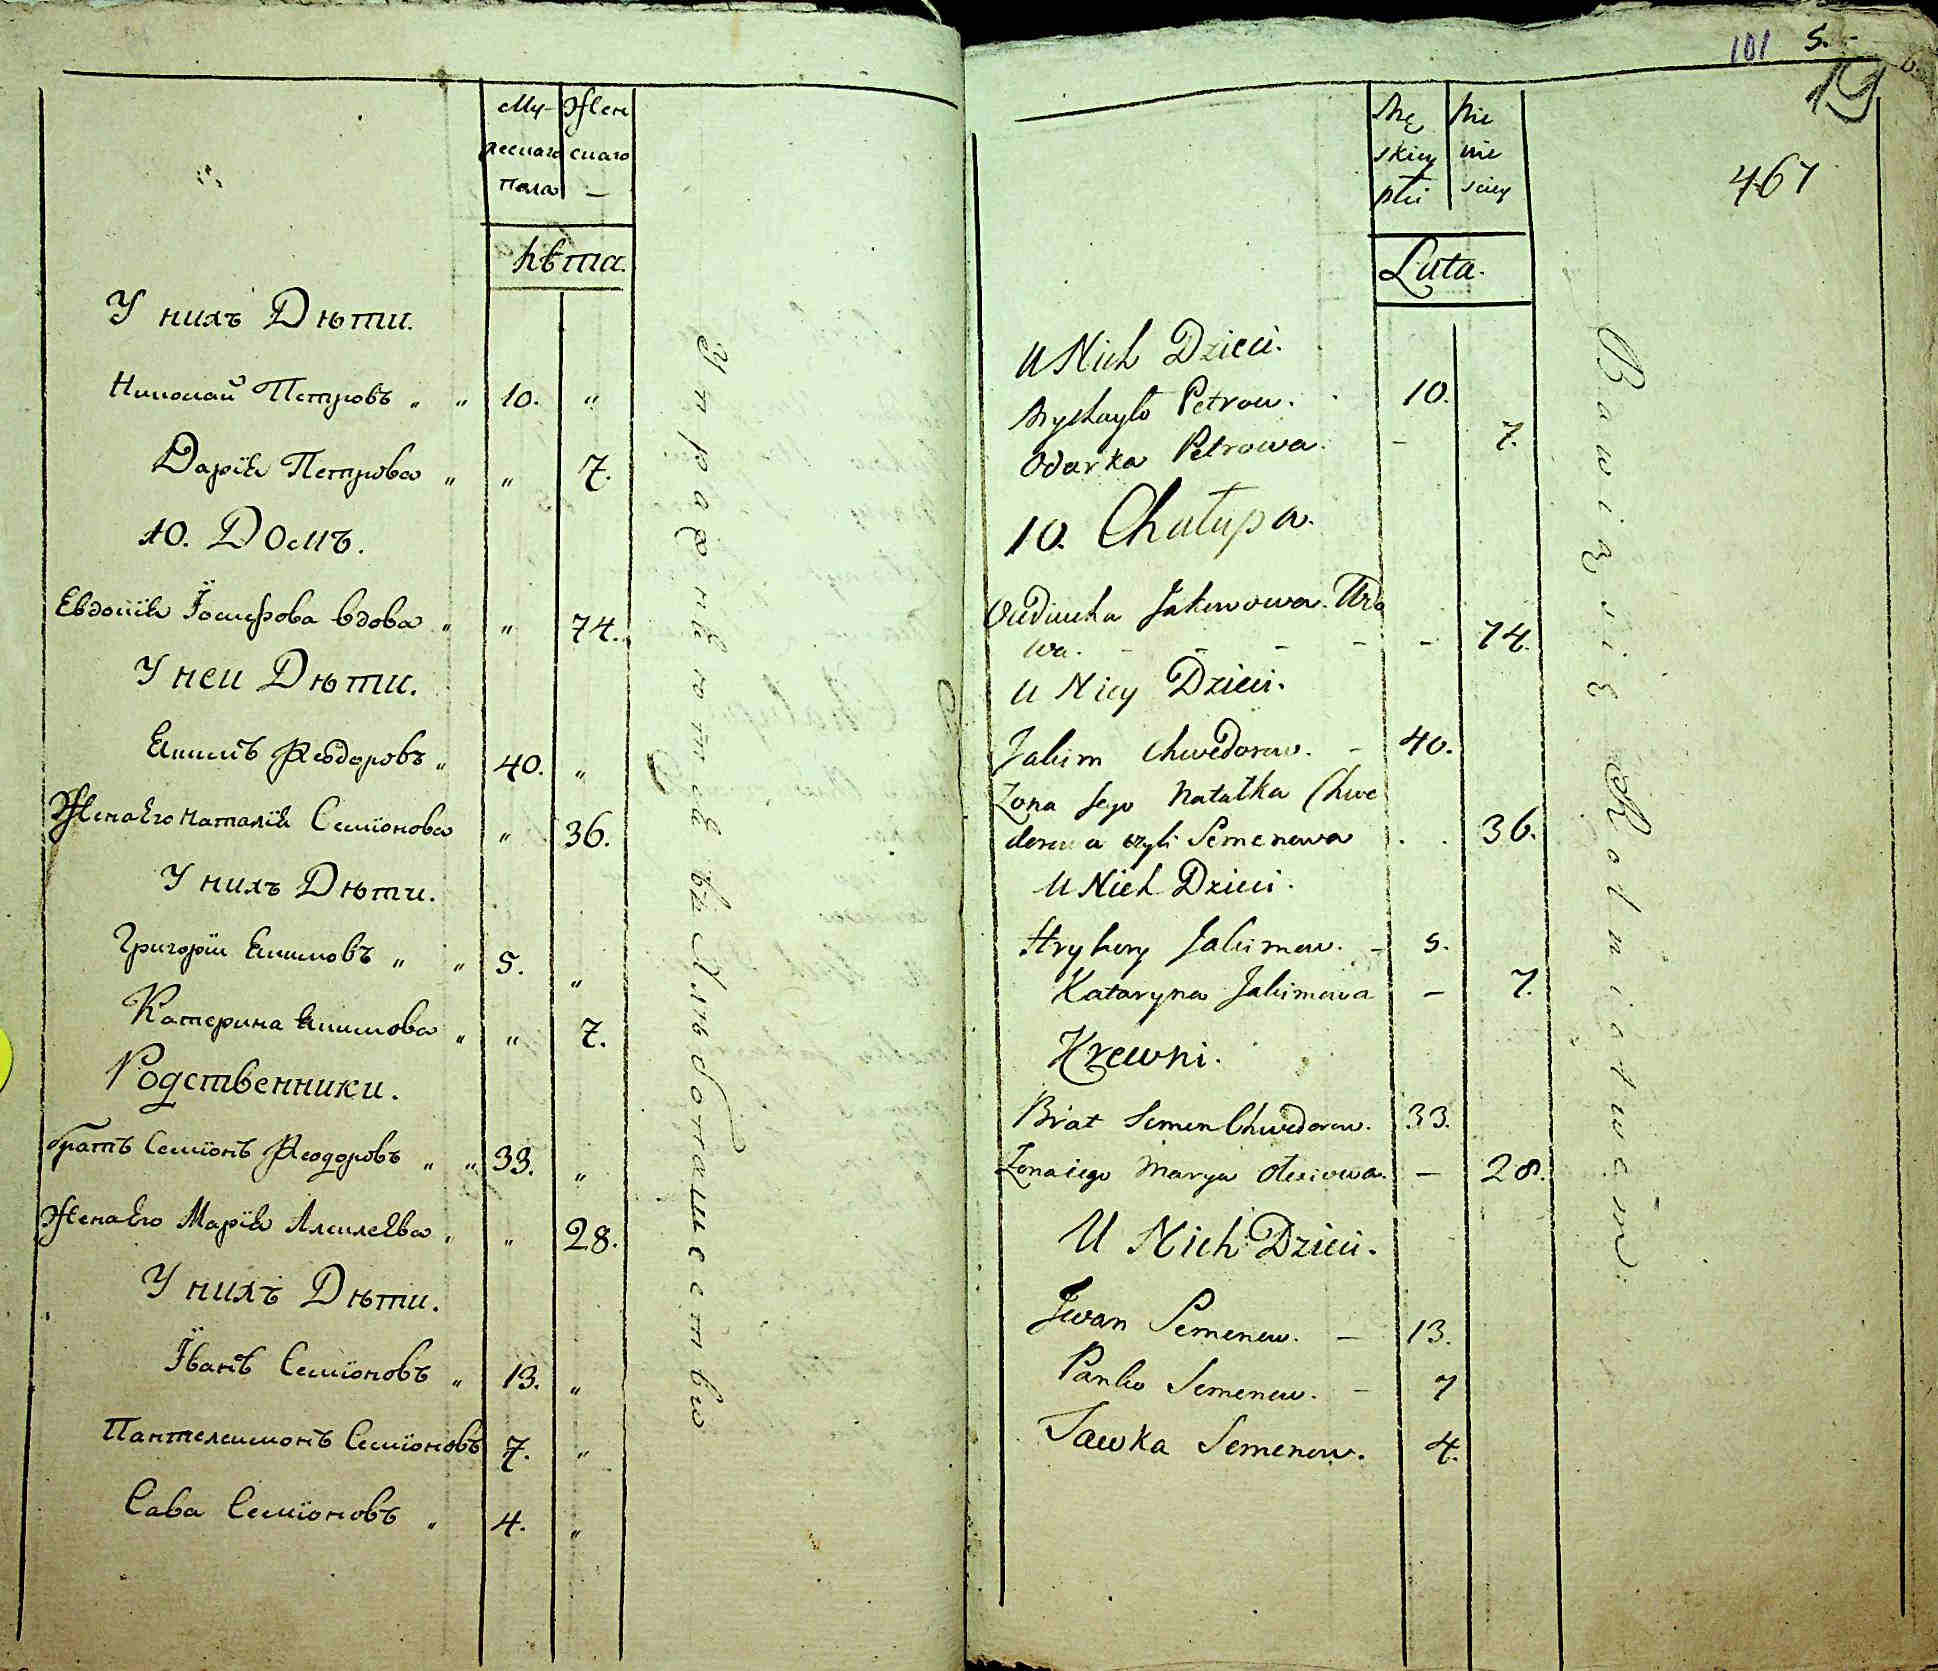 Мужескаго пола
Женскаго
Лѣта.
У нихъ Дѣти.
Николай Петровъ „ „ 10. „
Дарія Петрова „ „ 7.
10. Домъ.
Евдокія Іосифова вдова „ „ 74.
У неи Дѣти.
Екимъ Феодоровъ „ 40. „
Жена Его Наталія Семіонова „ 36.
У нихъ Дѣти.
Григоріи Екимовъ „ „ 5. „
Катерина Екимова „ „ 7.
Родственники.
братъ Семіонъ Феодоровъ „ „ 33. „
Жена Его Марія Алексеева „ „ 28.
У нихъ Дѣти.
Іванъ Семіоновъ „ 13. „
Пантелеимонъ Семіоновъ 7. „
Сава Семіоновъ „ 4. „
Упражняются въ Хлѣбопашествѣ
101 5.
19
467
Mę skiey płci
Nie wie sciey
Luta.
U Nich Dzieci.
Mychayło Petrow. 10.
Odarka Petrowa. - 7.
10. Chałupa.
Jakowowa. Wdo
wa. - - - - - 74.
U Niey Dzieci.
Jakim Chwedorow. - 40.
Zona Jego Natałka Chwe
dorowa czyli Semenowa . . 36.
U Nich Dzieci.
Hryhory Jakimow. - 5.
Kataryna Jakimowa - 7.
Krewni.
Brat Semen Chwedorow. 33.
Zona iego Marya Olexiowa. - 28.
U Nich Dzieci.
Jwan Semenow. - 13.
Panko Semenow. - 7
Sawka Semenow. 4.
Bawią się Rolnictwem